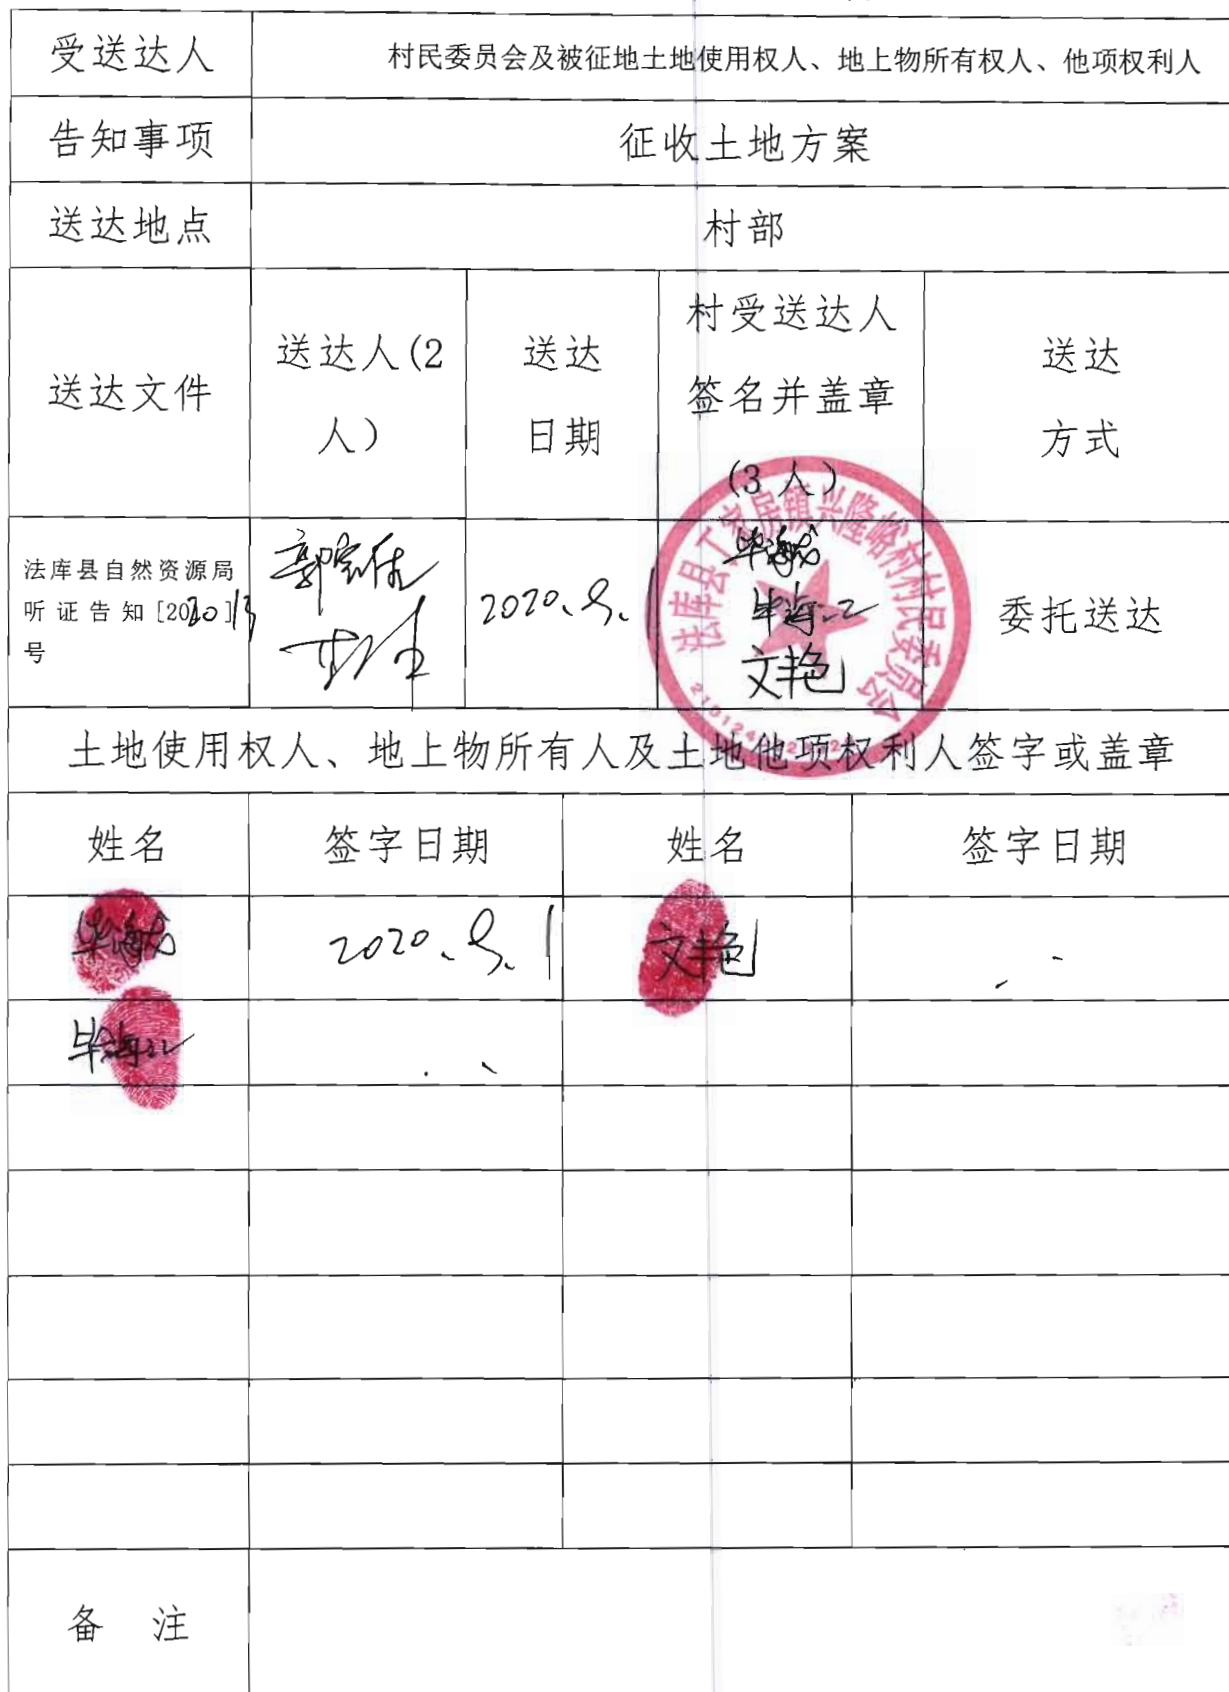 受送达人
村民委员会及被征地土地使用权人、地上物所有权人、他项权利人
告知事项
征收土地方案
送达地点
村部
送达文件
送达人(2
人)
送达
日期
村受送达人
签名并盖章
(3人)
送达
方式
法库县自然资源局
听证告知[2020]13
号
2020.9.1
毕海
毕海
文艳
委托送达
法库县丁家房镇兴隆峪村村民委员会
土地使用权人、地上物所有人及土地他项权利人签字或盖章
姓名
签字日期
姓名
签字日期
毕海
2020.9.1
文艳
毕海
备 注